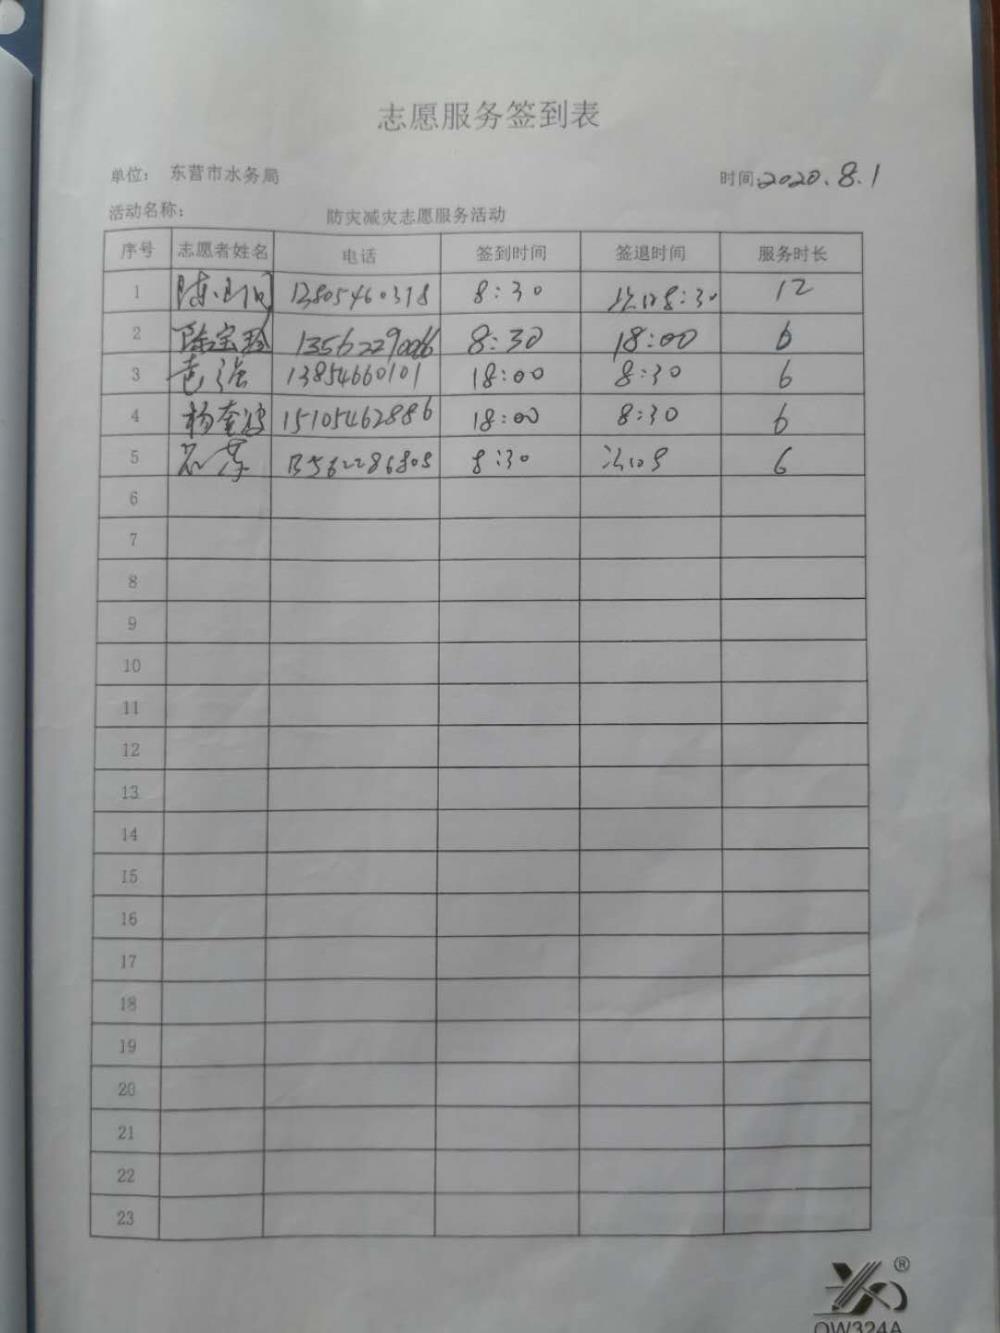 志愿服务签到表
单位： 东营市水务局 时间：2020.8.1
活动名称： 防灾减灾志愿服务活动
序号 志愿者姓名 电话 签到时间 签退时间 服务时长
1 13805460318 8:30 次日8:30 12
2 陈宝玲 13562290066 8:30 18:00 6
3 13854660101 18:00 8:30 6
4 杨奎波 15105462886 18:00 8:30 6
5 13562286808 8:30 6
6
7
8
9
10
11
12
13
14
15
16
17
18
19
20
21
22
23
®
QW324A